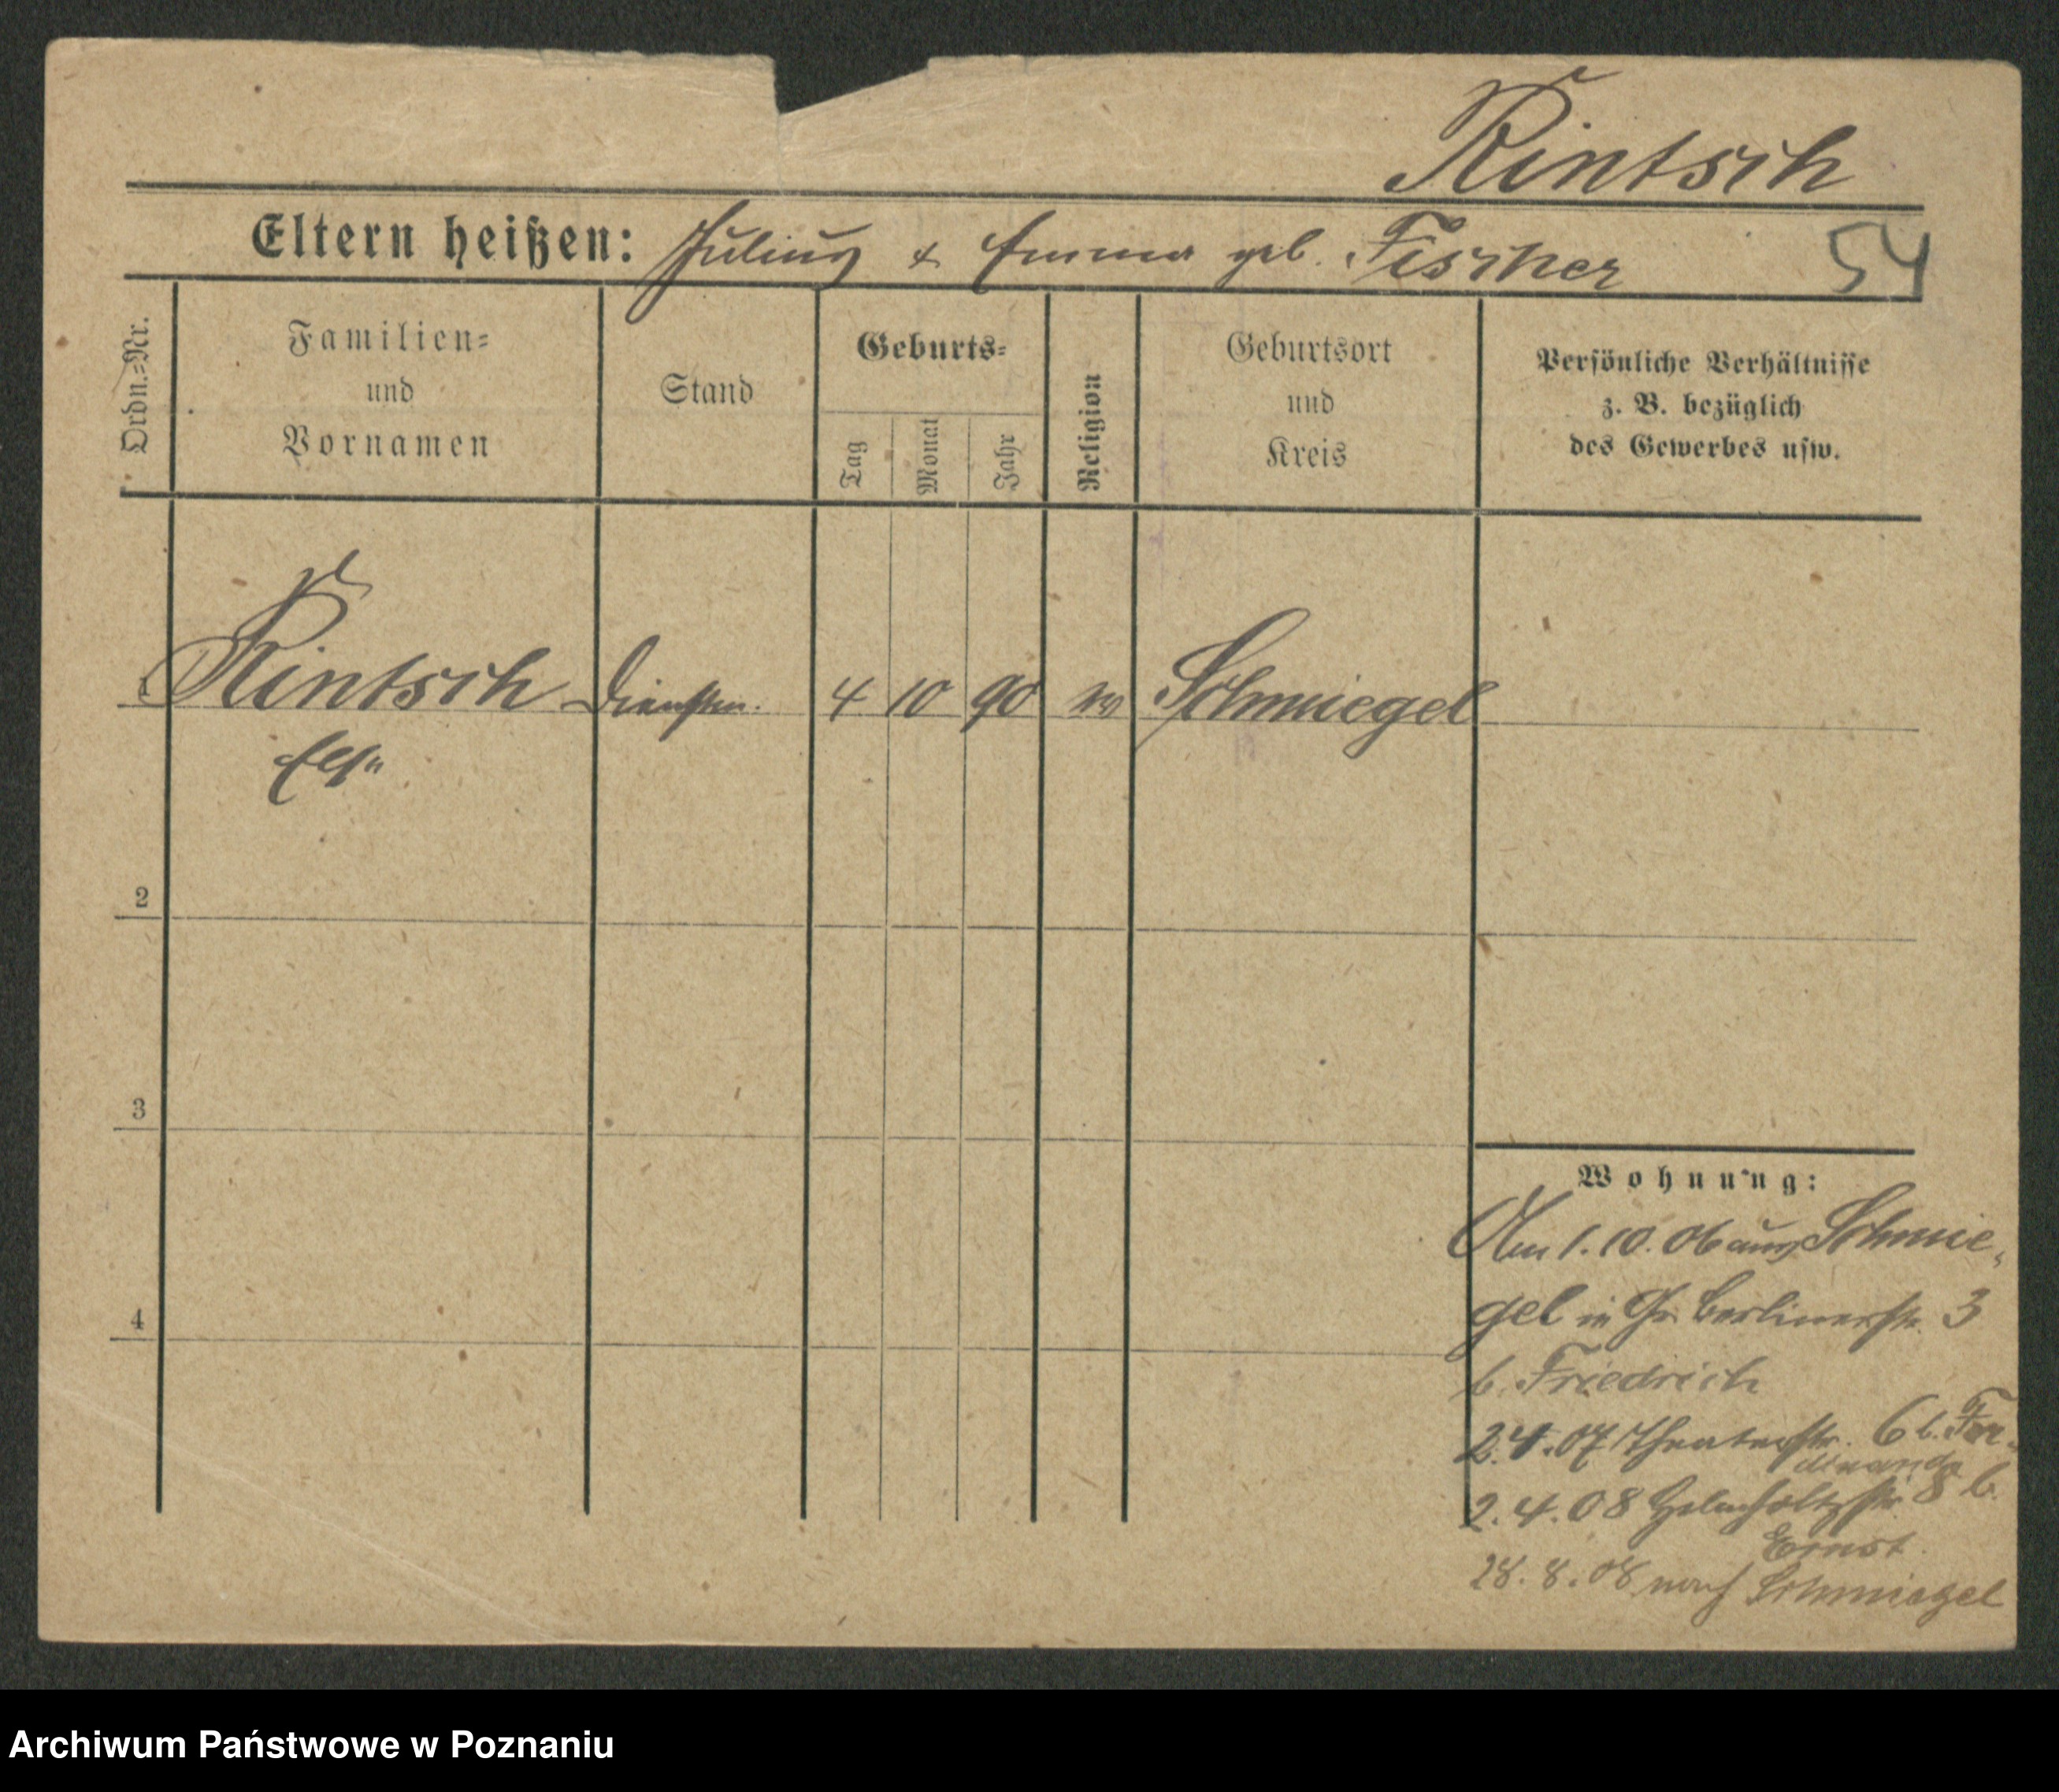 Rintsch
Eltern heißen: Julius & Emma geb. Fischer
54
Ordn.=Nr.
Familien=
und
Vornamen
Stand
Geburts=
Tag
Monat
Jahr
Religion
Geburtsort
und
Kreis
Persönliche Verhältnisse
z. B. bezüglich
des Gewerbes usw.
1 Rintsch Dienstm. 4 10 90 ev Schmiegel
Elsa
2
3
4
Wohnung:
Am 1.10.06 aus Schmie-
gel in Gr. Berlinerstr. 3
b. Friedrich
2.4.07 Theaterstr. 6 b. Fer-
dinands
2.4.08 Helmholtzstr. 8 b.
Ernst.
28.8.08 nach Schmiegel
Archiwum Państwowe w Poznaniu